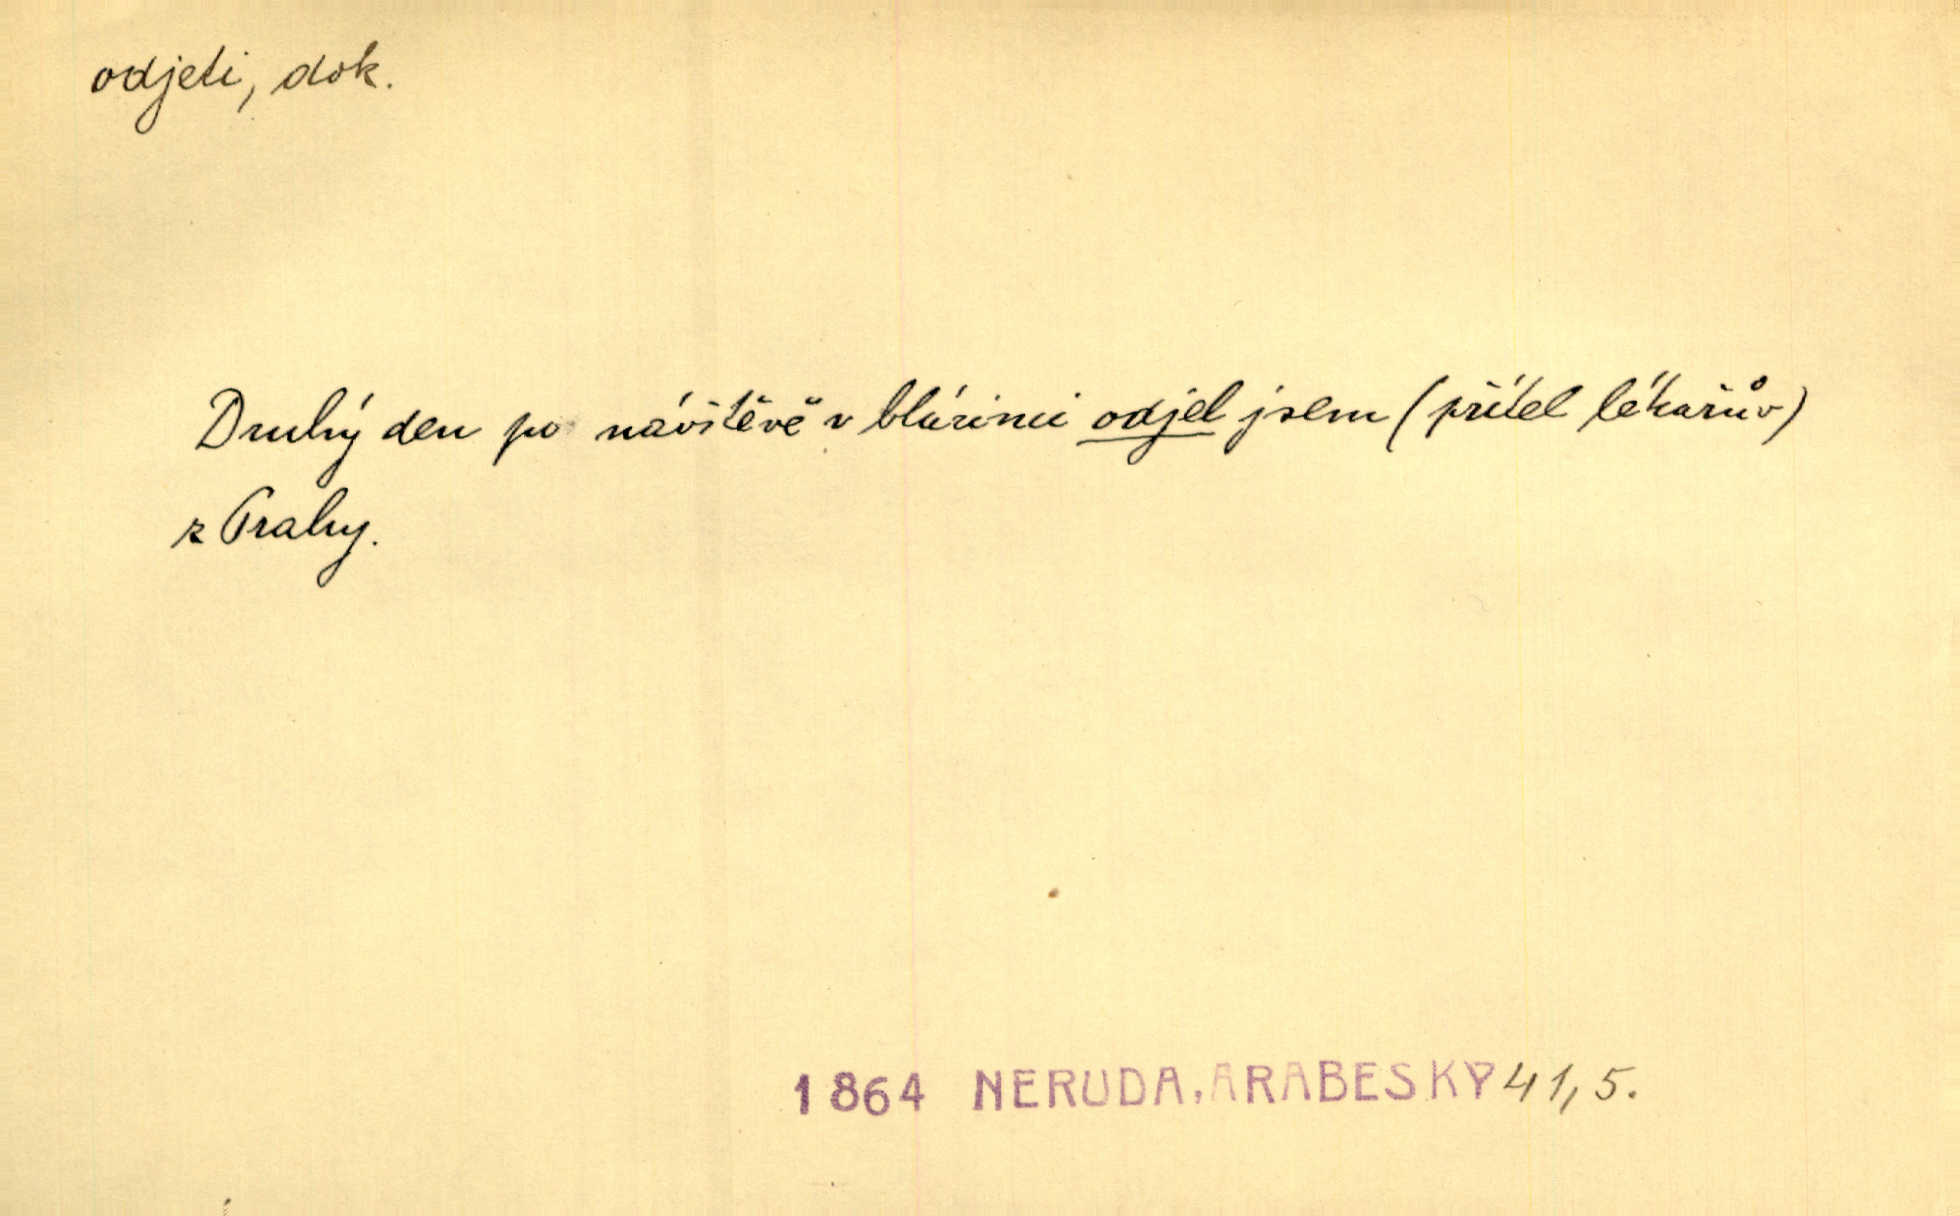 odjeti, dok.
Druhý den po návštěvě v blázinci odjel jsem (přítel lékařův)
z Prahy.
1864 NERUDA, ARABESKY 41, 5.